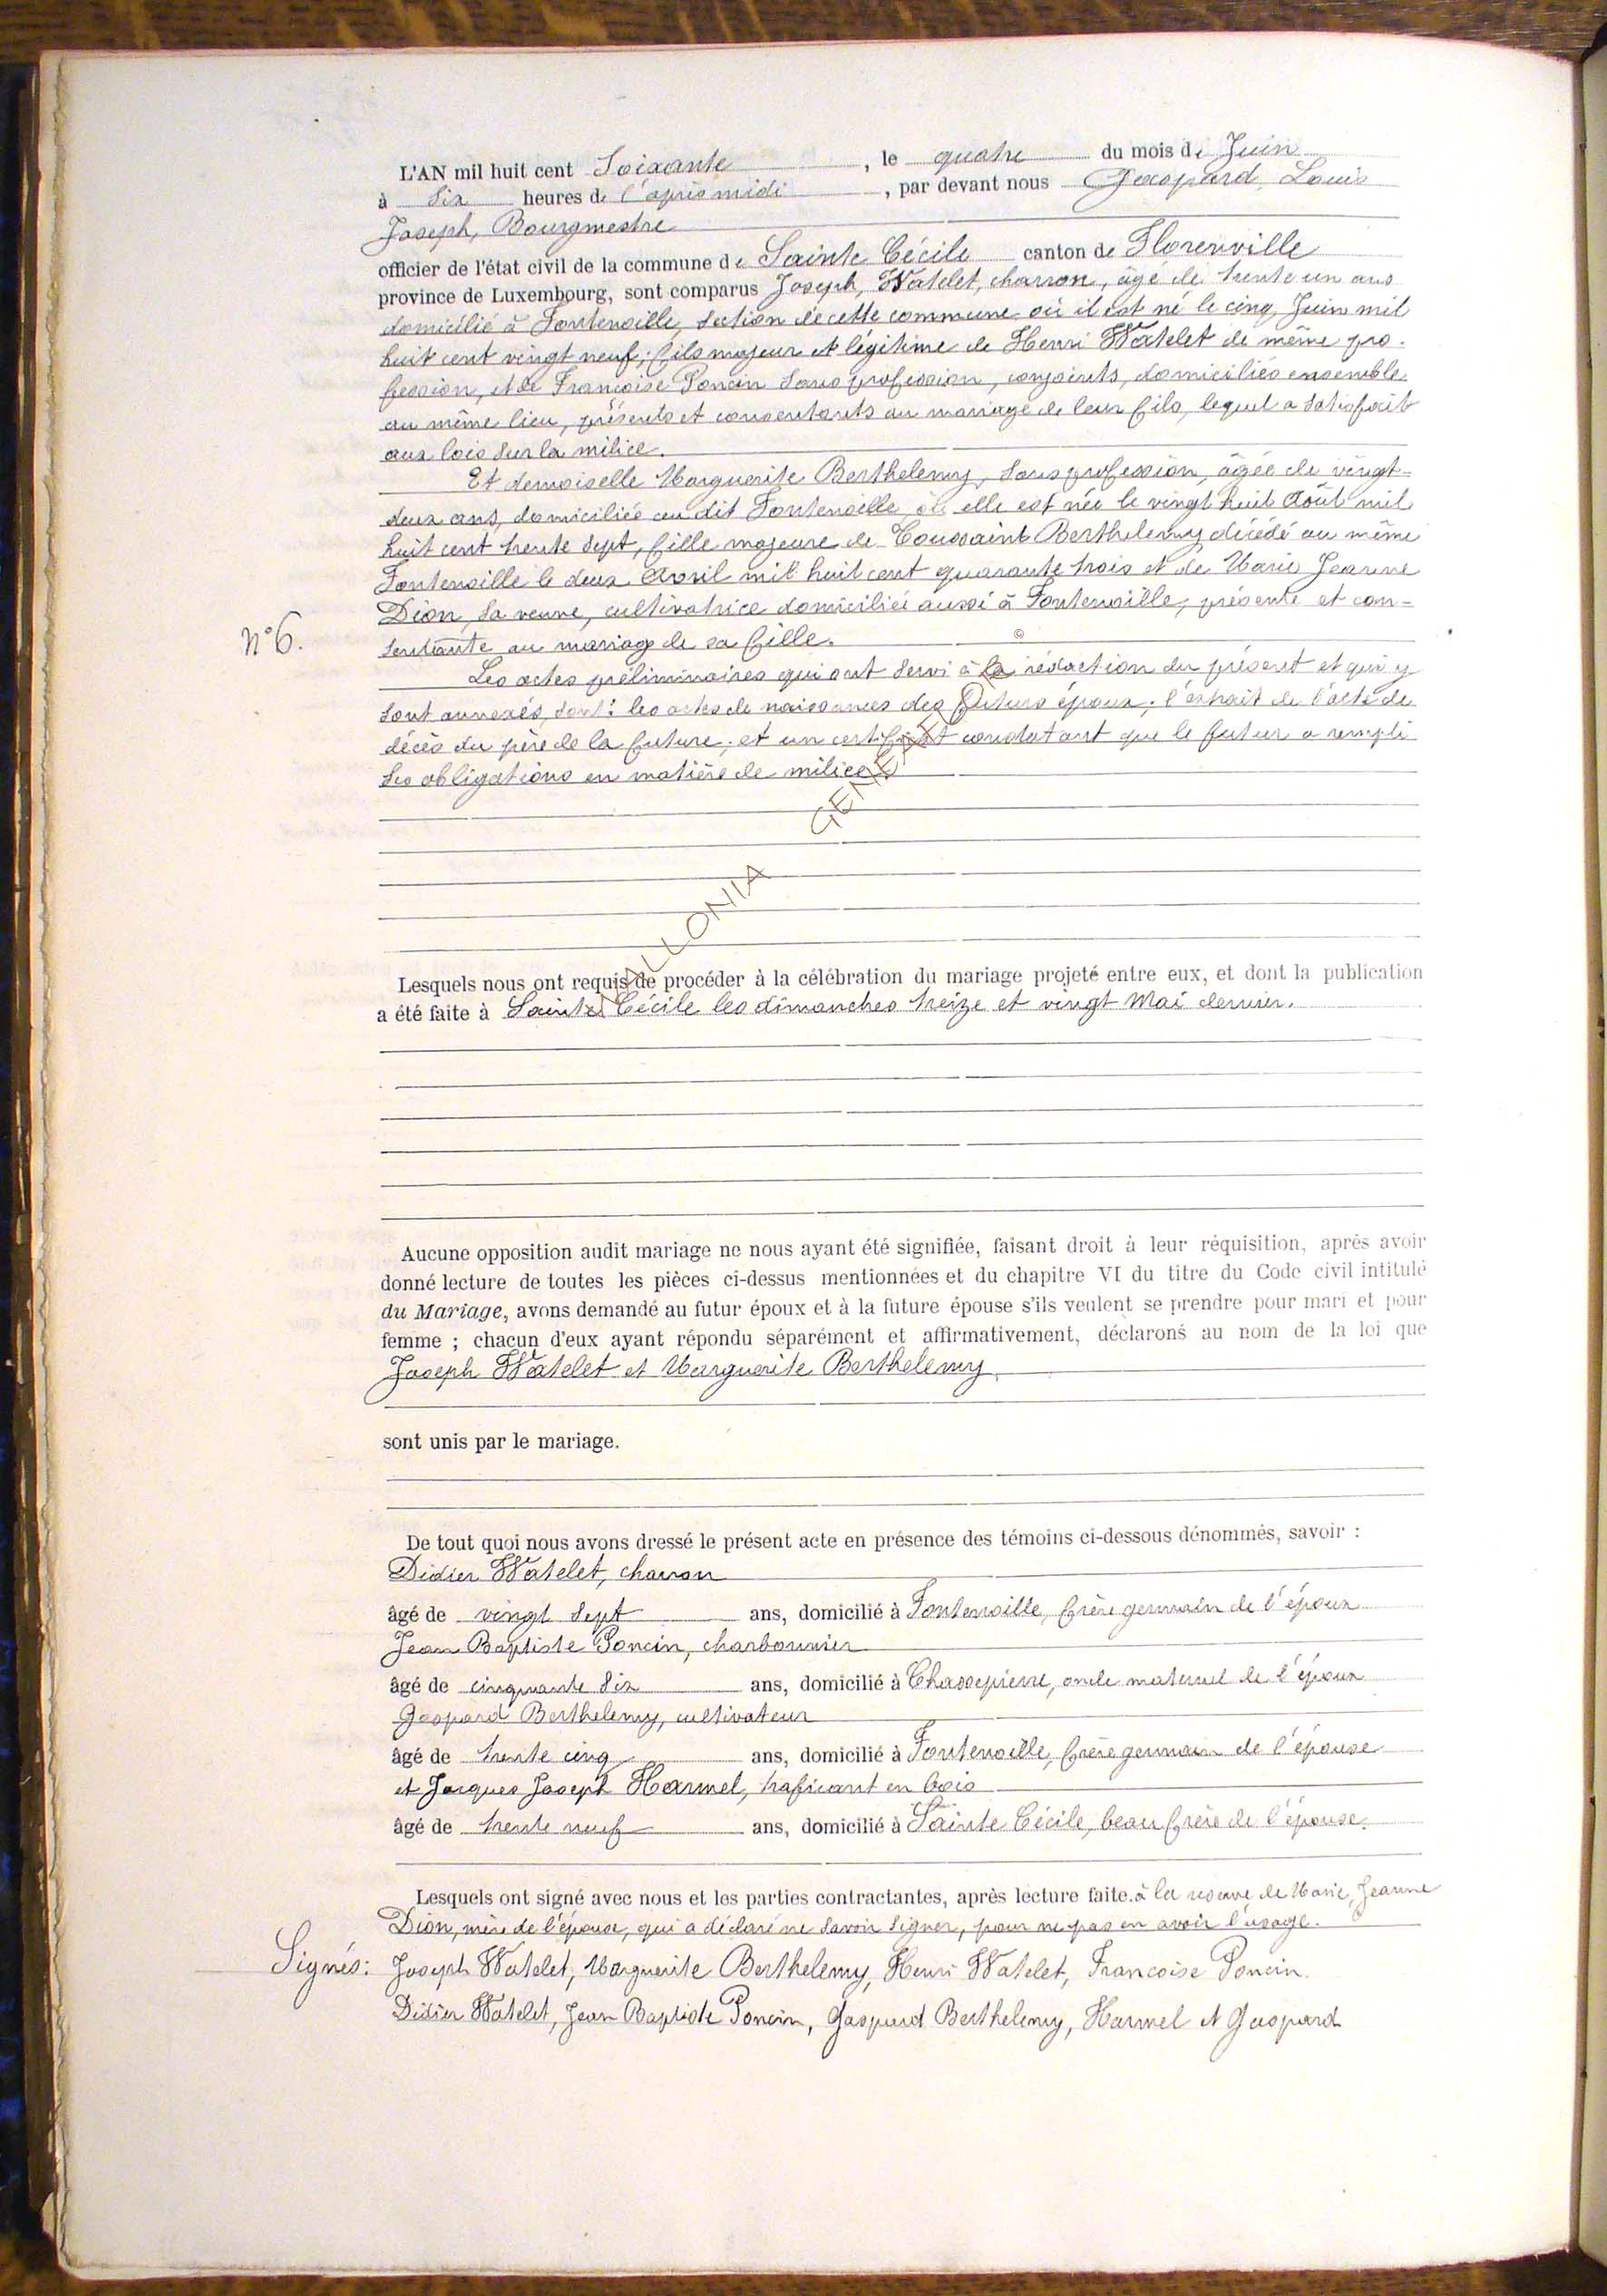 L'AN mil huit cent Soixante, le quatre du mois de Juin
à Six heures de l'après midi, par devant nous Gaspard Louis
Joseph, Bourgmestre
officier de l'état civil de la commune de Sainte Cécile canton de Florenville
province de Luxembourg, sont comparus Joseph, Watelet, charron, âgé de trente un ans
domicilié à Fontenoille, Section de cette commune où il est né le cinq Juin mil
huit cent vingt neuf; fils majeur et légitime de Henri Watelet de même pro-
fession, et de Françoise Poncin Sans profession, conjoints, domiciliés ensemble
au même lieu, présents et consentants au mariage de leur fils, lequel a satisfait
aux lois sur la milice.
Et demoiselle Marguerite Berthelemy, Sans profession, âgée de vingt-
deux ans, domiciliée au dit Fontenoille où elle est née le vingt huit Août mil
huit cent trente Sept, fille majeure de Toussaint Berthelemy décédé au même
Fontenoille le deux Avril mil huit cent quarante trois et de Marie Jeanne
Dion, Sa veuve, cultivatrice domiciliée aussi à Fontenoille, présente et con-
N° 6.
sentante au mariage de sa fille.
Les actes préliminaires qui ont Servi à la rédaction du présent et qui y
Sont annexés, Sont: les actes de naissances des futurs époux; l'extrait de l'acte de
décès du père de la future; et un certificat constatant que le futur a rempli
Ses obligations en matière de milice
WALLONIA GENEALOGIE ©
Lesquels nous ont requis de procéder à la célébration du mariage projeté entre eux, et dont la publication
a été faite à Sainte Cécile les dimanches treize et vingt Mai dernier.
Aucune opposition audit mariage ne nous ayant été signifiée, faisant droit à leur réquisition, après avoir
donné lecture de toutes les pièces ci-dessus mentionnées et du chapitre VI du titre du Code civil intitulé
du Mariage, avons demandé au futur époux et à la future épouse s'ils veulent se prendre pour mari et pour
femme ; chacun d'eux ayant répondu séparément et affirmativement, déclarons au nom de la loi que
Joseph Watelet et Marguerite Berthelemy
sont unis par le mariage.
De tout quoi nous avons dressé le présent acte en présence des témoins ci-dessous dénommés, savoir :
Didier Watelet, charron
âgé de vingt Sept ans, domicilié à Fontenoille, frère germain de l'époux
Jean Baptiste Poncin, charbonnier
âgé de cinquante Six ans, domicilié à Chassepierre, oncle maternel de l'époux
Gaspard Berthelemy, cultivateur
âgé de trente cinq ans, domicilié à Fontenoille, frère germain de l'épouse
et Jacques Joseph Harmel, traficant en bois
âgé de trente neuf ans, domicilié à Sainte Cécile, beau frère de l'épouse.
Lesquels ont signé avec nous et les parties contractantes, après lecture faite. à la réserve de Marie, Jeanne
Dion, mère de l'épouse, qui a déclaré ne Savoir Signer, pour ne pas en avoir l'usage.
Signés: Joseph Watelet, Marguerite Berthelemy, Henri Watelet, Francoise Poncin.
Didier Watelet, Jean Baptiste Poncin, Gaspard Berthelemy, Harmel et Gaspard